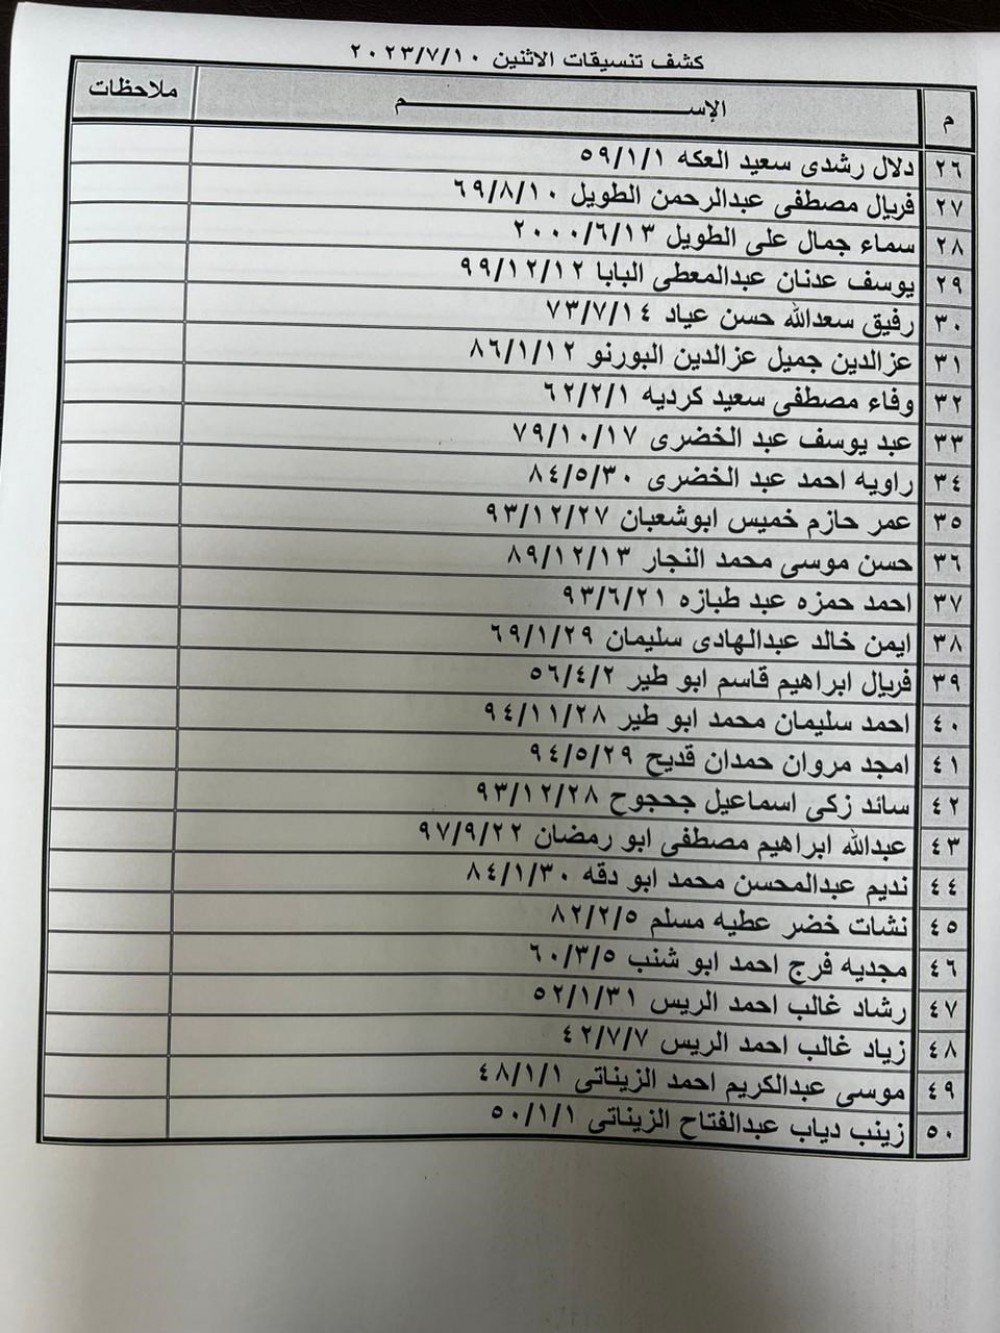 كشف تنسيقات الاثنين ٢٠٢٣/٧/١٠
م الإســـــــــــــم ملاحظات
٢٦ دلال رشدى سعيد العكه ٥٩/١/١
٢٧ فريال مصطفى عبدالرحمن الطويل ٦٩/٨/١٠
٢٨ سماء جمال على الطويل ٢٠٠٠/٦/١٣
٢٩ يوسف عدنان عبدالمعطى البابا ٩٩/١٢/١٢
٣٠ رفيق سعدالله حسن عياد ٧٣/٧/١٤
٣١ عزالدين جميل عزالدين البورنو ٨٦/١/١٢
٣٢ وفاء مصطفى سعيد كرديه ٦٢/٢/١
٣٣ عبد يوسف عبد الخضرى ٧٩/١٠/١٧
٣٤ راويه احمد عبد الخضرى ٨٤/٥/٣٠
٣٥ عمر حازم خميس ابوشعبان ٩٣/١٢/٢٧
٣٦ حسن موسى محمد النجار ٨٩/١٢/١٣
٣٧ احمد حمزه عبد طبازه ٩٣/٦/٢١
٣٨ ايمن خالد عبدالهادى سليمان ٦٩/١/٢٩
٣٩ فريال ابراهيم قاسم ابو طير ٥٦/٤/٢
٤٠ احمد سليمان محمد ابو طير ٩٤/١١/٢٨
٤١ امجد مروان حمدان قديح ٩٤/٥/٢٩
٤٢ سائد زكى اسماعيل جحجوح ٩٣/١٢/٢٨
٤٣ عبدالله ابراهيم مصطفى ابو رمضان ٩٧/٩/٢٢
٤٤ نديم عبدالمحسن محمد ابو دقه ٨٤/١/٣٠
٤٥ نشات خضر عطيه مسلم ٨٢/٢/٥
٤٦ مجديه فرج احمد ابو شنب ٦٠/٣/٥
٤٧ رشاد غالب احمد الريس ٥٢/١/٣١
٤٨ زياد غالب احمد الريس ٤٢/٧/٧
٤٩ موسى عبدالكريم احمد الزيناتى ٤٨/١/١
٥٠ زينب دياب عبدالفتاح الزيناتى ٥٠/١/١